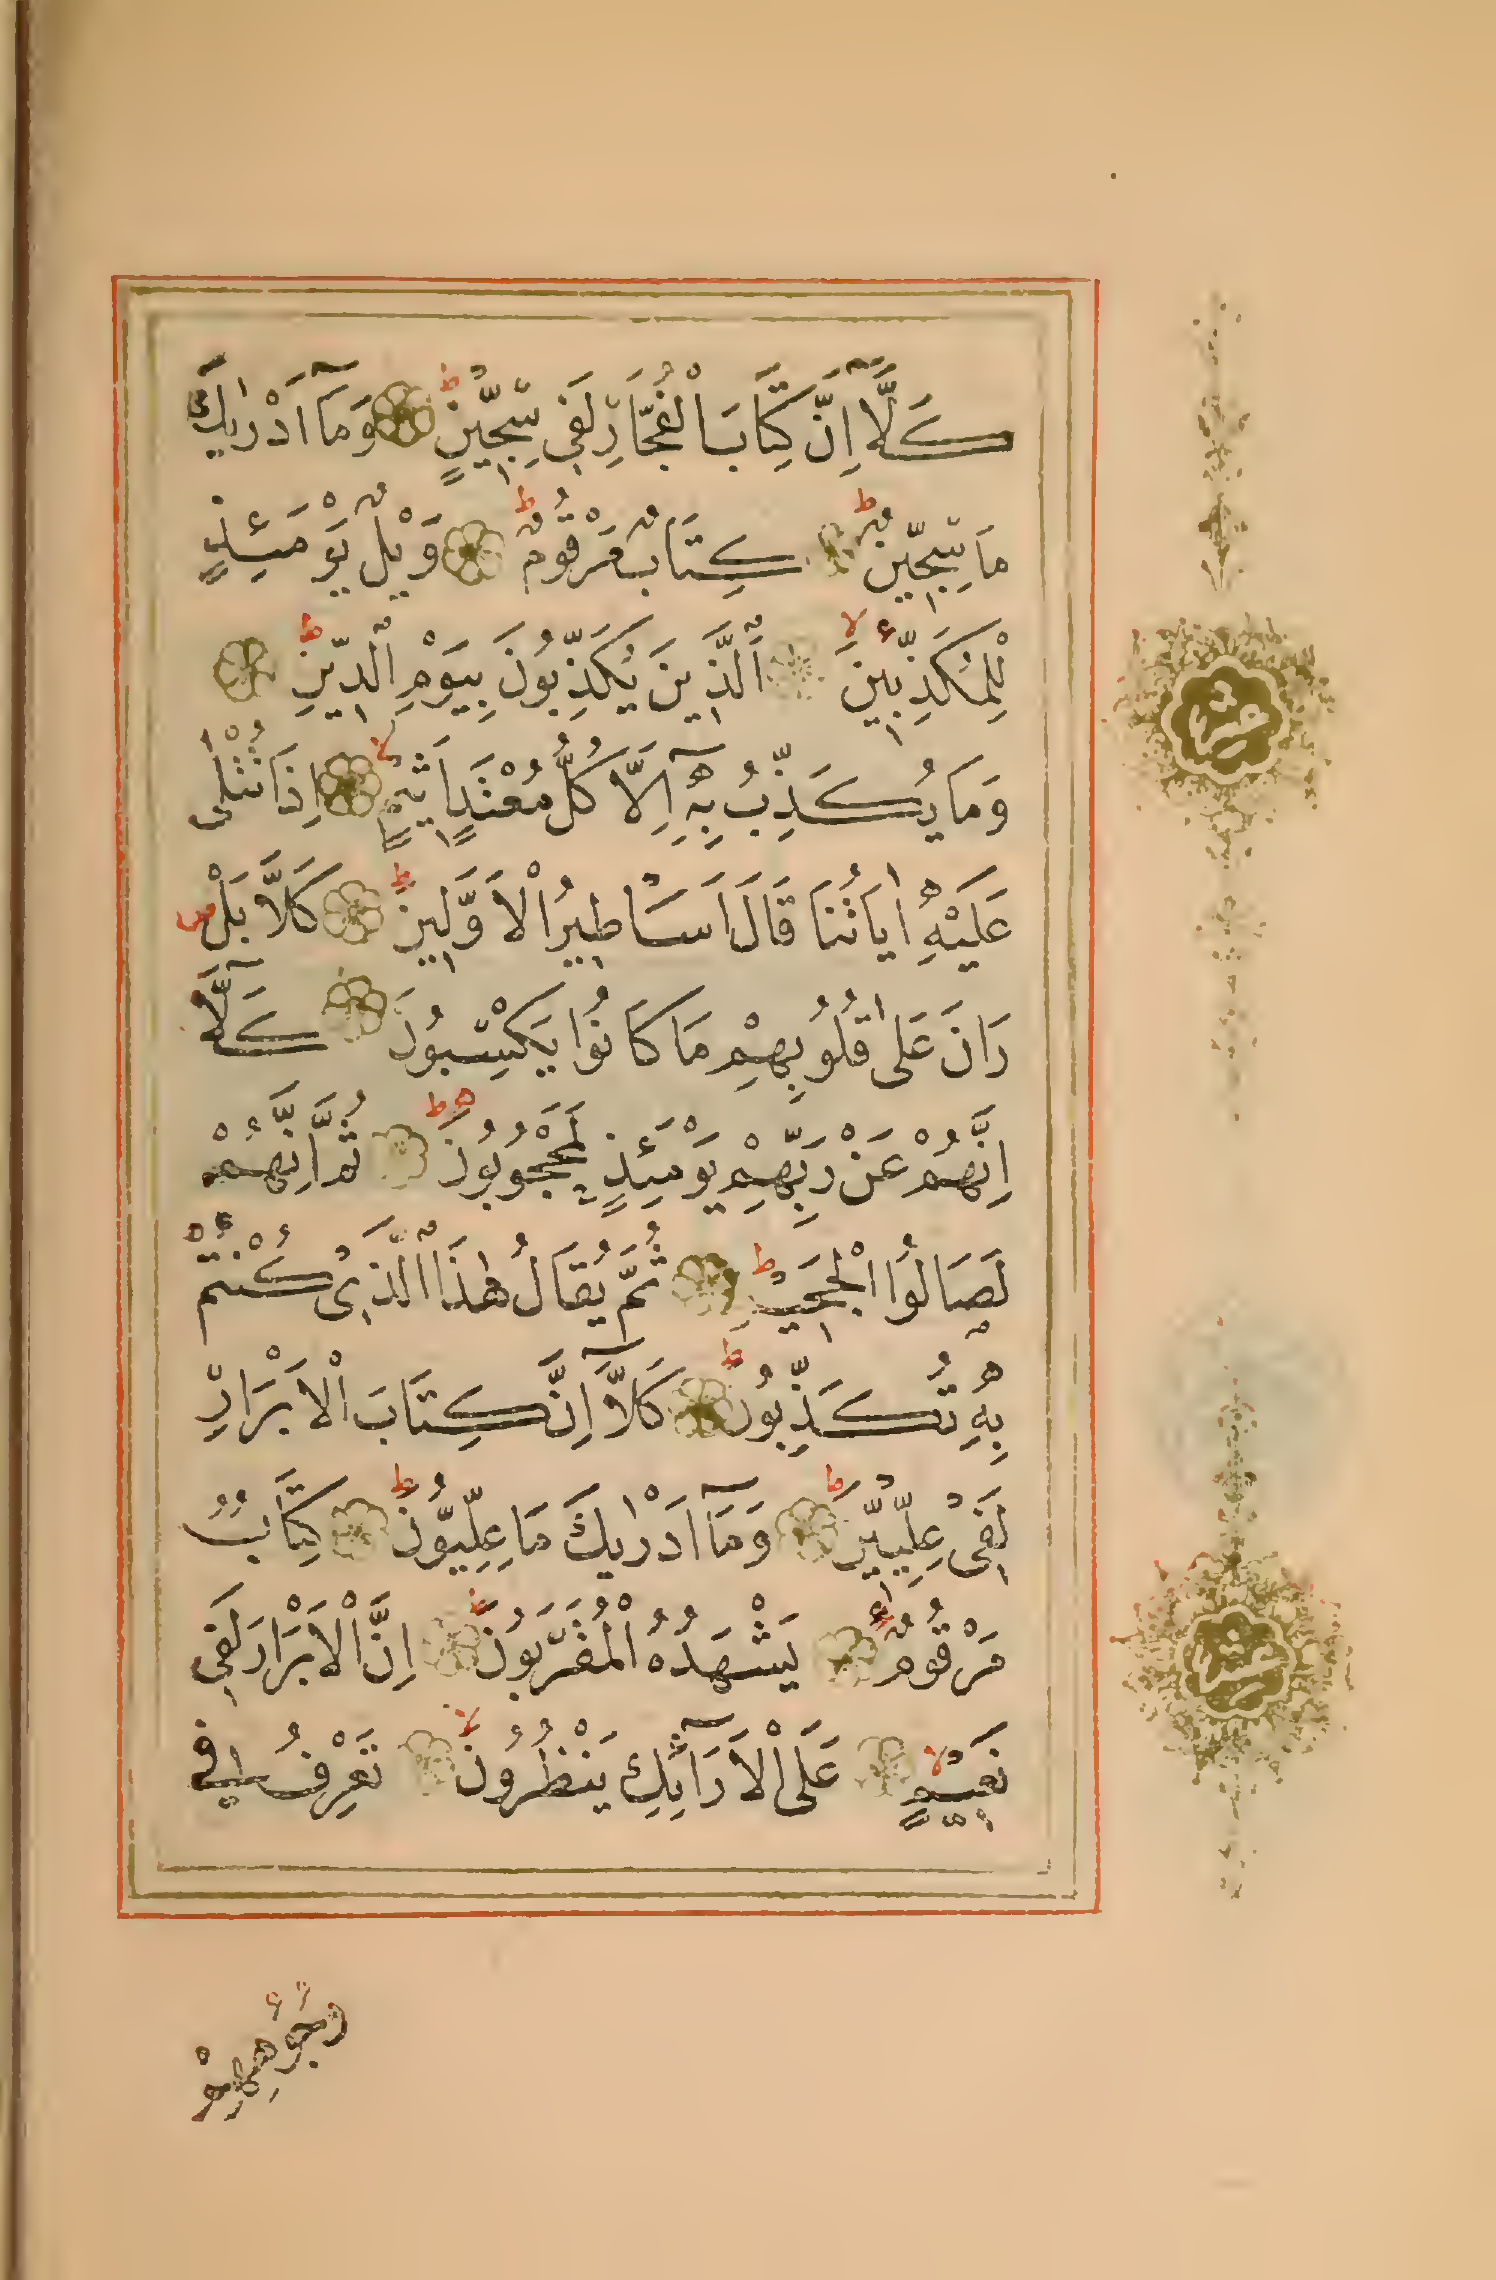 كَلَّآ اِنَّ كِتَابَ الْفُجَّارِ لَفِي سِجِّينٍ ط وَمَآ اَدْرٰيكَ
مَا سِجِّينٌ ط كِتَابٌ مَرْقُومٌ ط وَيْلٌ يَوْمَئِذٍ
لِلْمُكَذِّبِينَ لا اَلَّذِينَ يُكَذِّبُونَ بِيَوْمِ الدِّينِ ط
وَمَا يُكَذِّبُ بِهِٓ اِلَّا كُلُّ مُعْتَدٍ اَثِيمٍ لا اِذَا تُتْلٰى
عَلَيْهِ اٰيَاتُنَا قَالَ اَسَاطِيرُ الْاَوَّلِينَ ط كَلَّا بَلْ
رَانَ عَلٰى قُلُوبِهِمْ مَا كَانُوا يَكْسِبُونَ كَلَّآ
اِنَّهُمْ عَنْ رَبِّهِمْ يَوْمَئِذٍ لَمَحْجُوبُونَ ط ثُمَّ اِنَّهُمْ
لَصَالُوا الْجَحِيمِ ط ثُمَّ يُقَالُ هٰذَا الَّذِي كُنْتُمْ
بِهِ تُكَذِّبُونَ ط كَلَّآ اِنَّ كِتَابَ الْاَبْرَارِ
لَفِي عِلِّيِّينَ ط وَمَآ اَدْرٰيكَ مَا عِلِّيُّونَ ط كِتَابٌ
مَرْقُومٌ يَشْهَدُهُ الْمُقَرَّبُونَ ط اِنَّ الْاَبْرَارَ لَفِي
نَعِيمٍ لا عَلَى الْاَرَآئِكِ يَنْظُرُونَ لا تَعْرِفُ فِي
وُجُوهِهِمْ